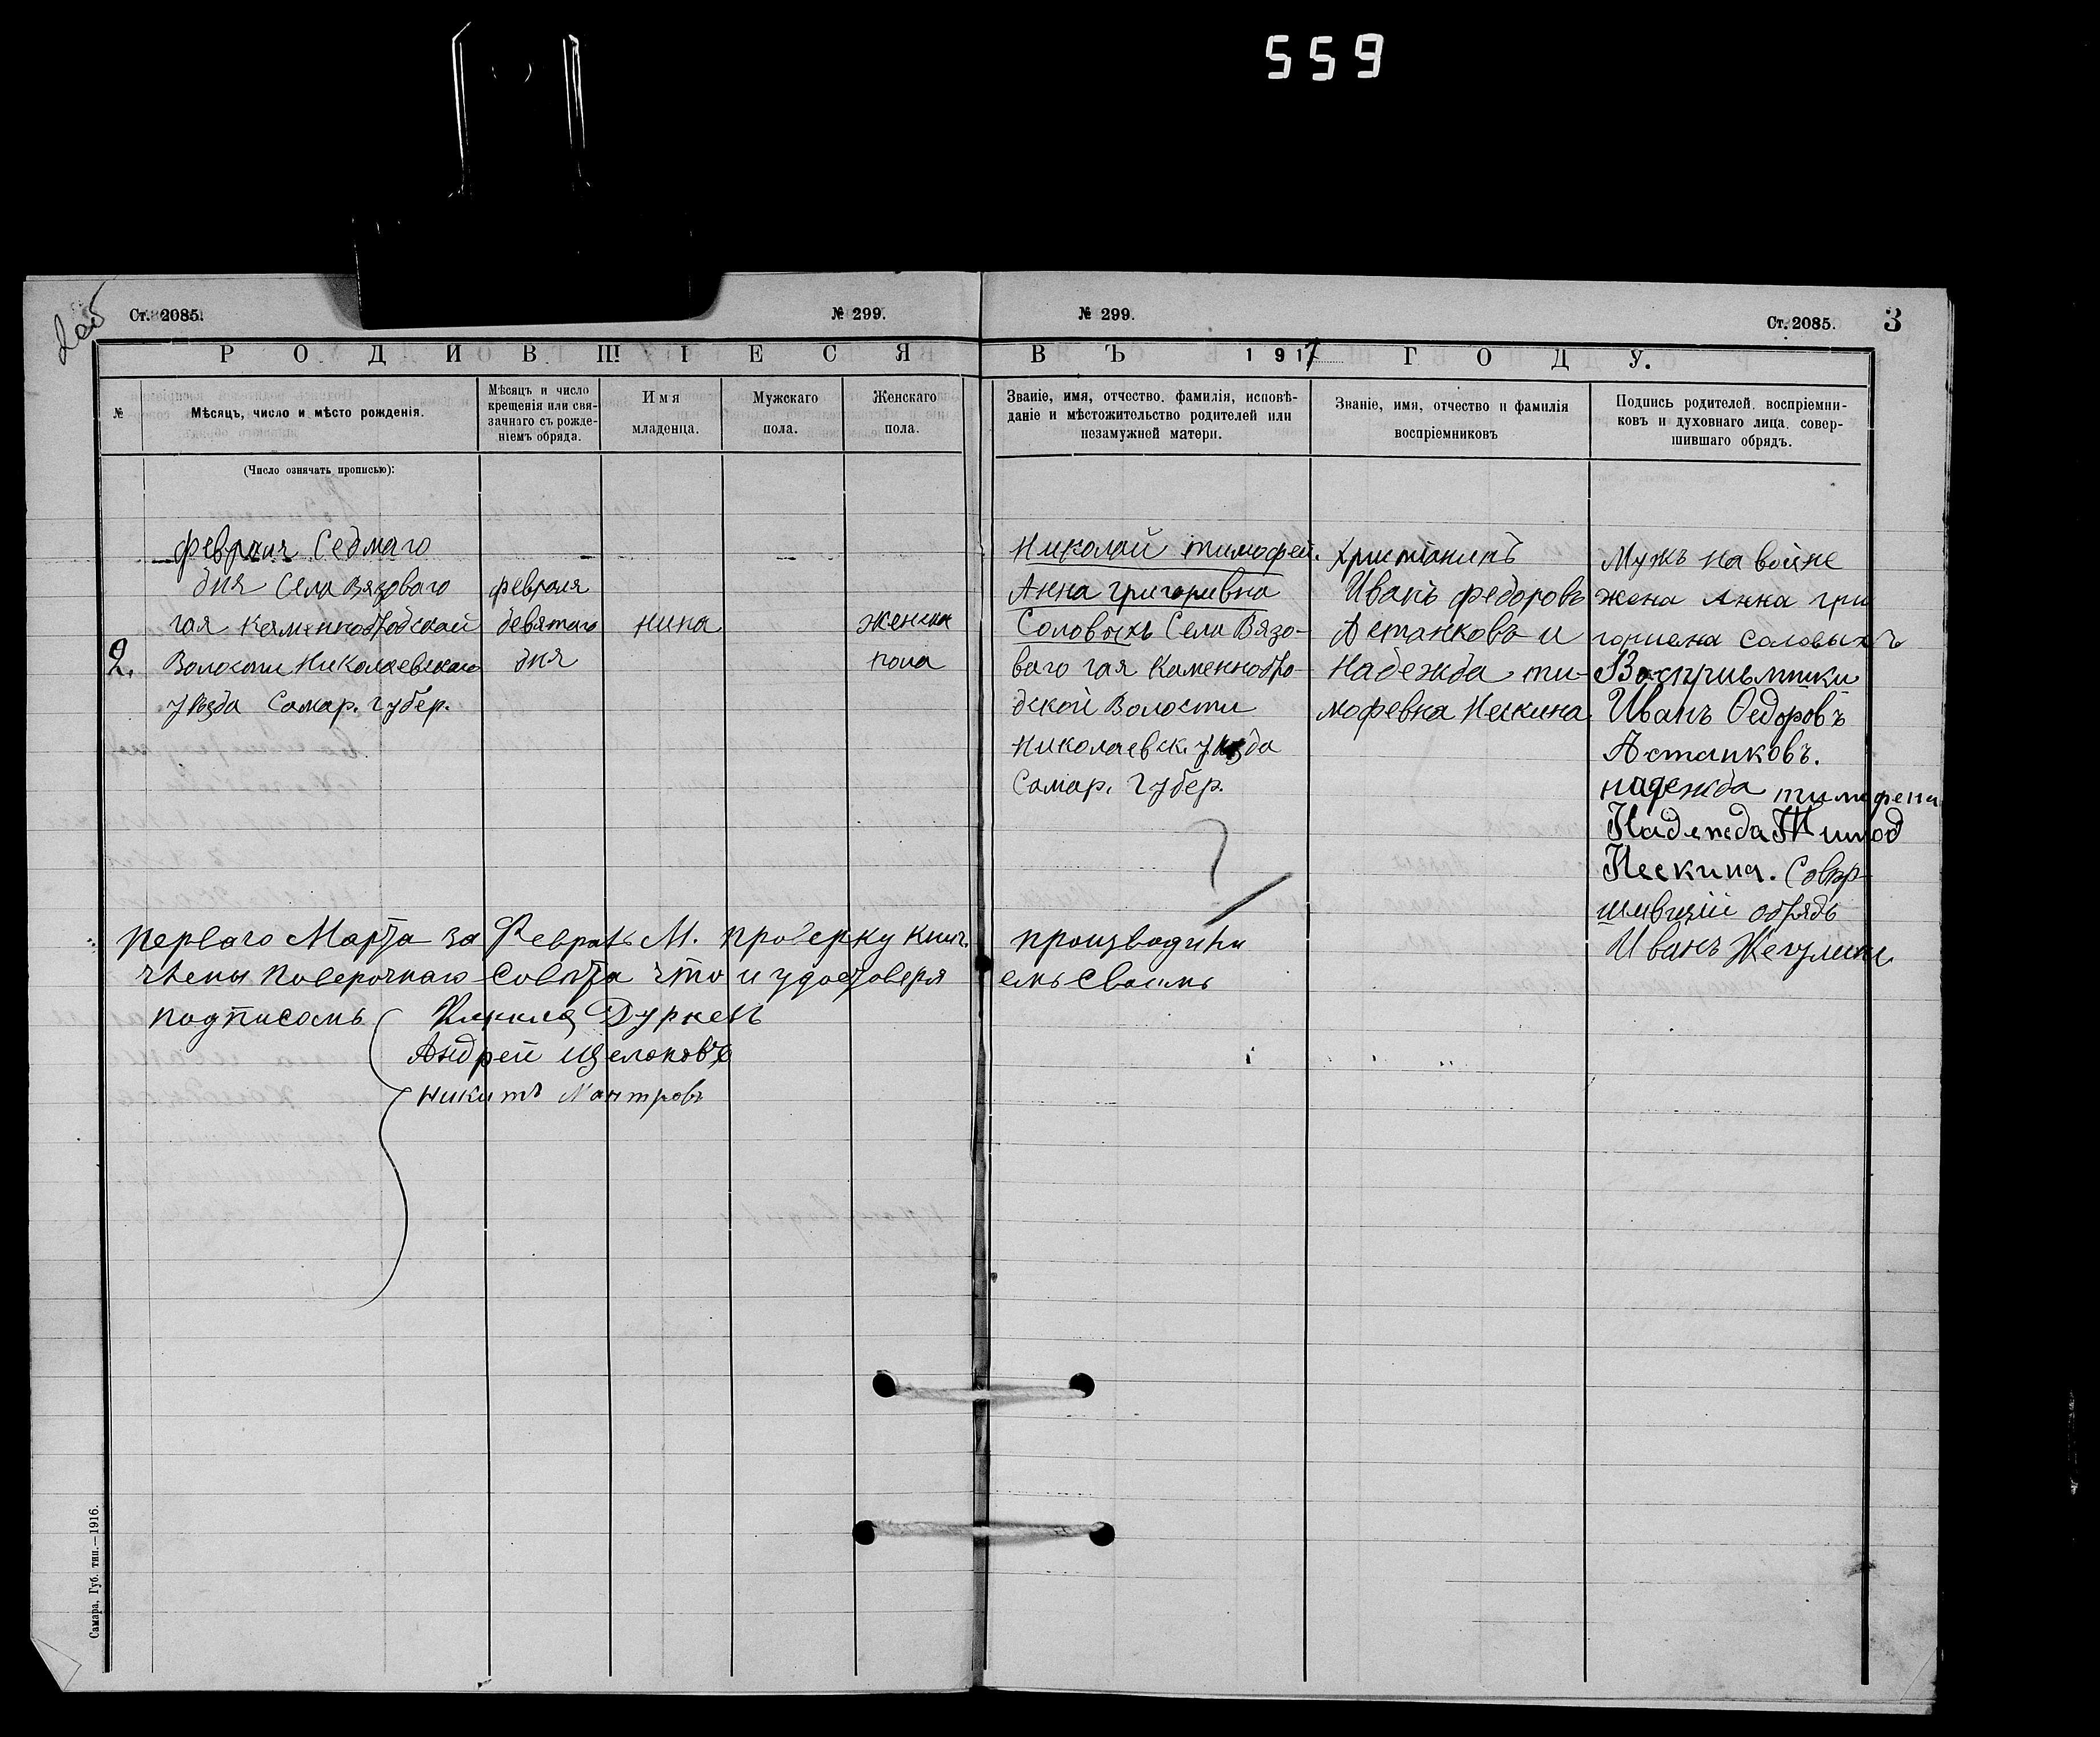 559
Ст. 2085.
№ 299.
№ 299.
Ст. 2085.
3
РОДИВШІЕСЯ
ВЪ 1917 ГОДУ.
№
Мѣсяцъ, число и мѣсто рожденія.
Мѣсяцъ и число
крещенія или свя-
зачнаго съ рожде-
ніемъ обряда.
Имя
младенца.
Мужскаго
пола.
Женскаго
пола.
Званіе, имя, отчество, фамилія, исповѣ-
даніе и мѣстожительство родителей или
незамужней матери.
Званіе, имя, отчество и фамилія
воспріемниковъ
Подпись родителей, воспріемни-
ковъ и духовнаго лица, совер-
шившаго обрядъ.
(Число означать прописью):
2.
февраля Седмаго
дня Села Вязоваго
гая Каменнобродской
Волости Николаевскаго
уѣзда Самар. губер.
февраля
девятаго
дня
нина
женска
пола
Николай тимофей.
Анна григоривна
Соловыхъ Села Вязо-
ваго гая Каменнобро-
дской Волости
Николаевск. уѣзда
Самар. Губер.
христіанинъ
Иванъ федоровъ
Астанковъ и
Надежда ти-
мофевна Пескина
Мужъ на войне
жена Анна гри
горивна соловыхъ
Восприѣмники
Иванъ Ѳедоровъ
Астанковъ.
надежда тимофевна
Надежда Тимоф
Пескина. Совер-
шившій обрядъ
Иванъ Жегулинъ
перваго Марта за Февраль М. проверку книг. производили
члены поверочнаго Совѣта что и удостоверя емъ своимъ
подписомъ
Дуркевъ
Андрей Щелоковъ
никитъ
Самара, Губ. тип.—1916.